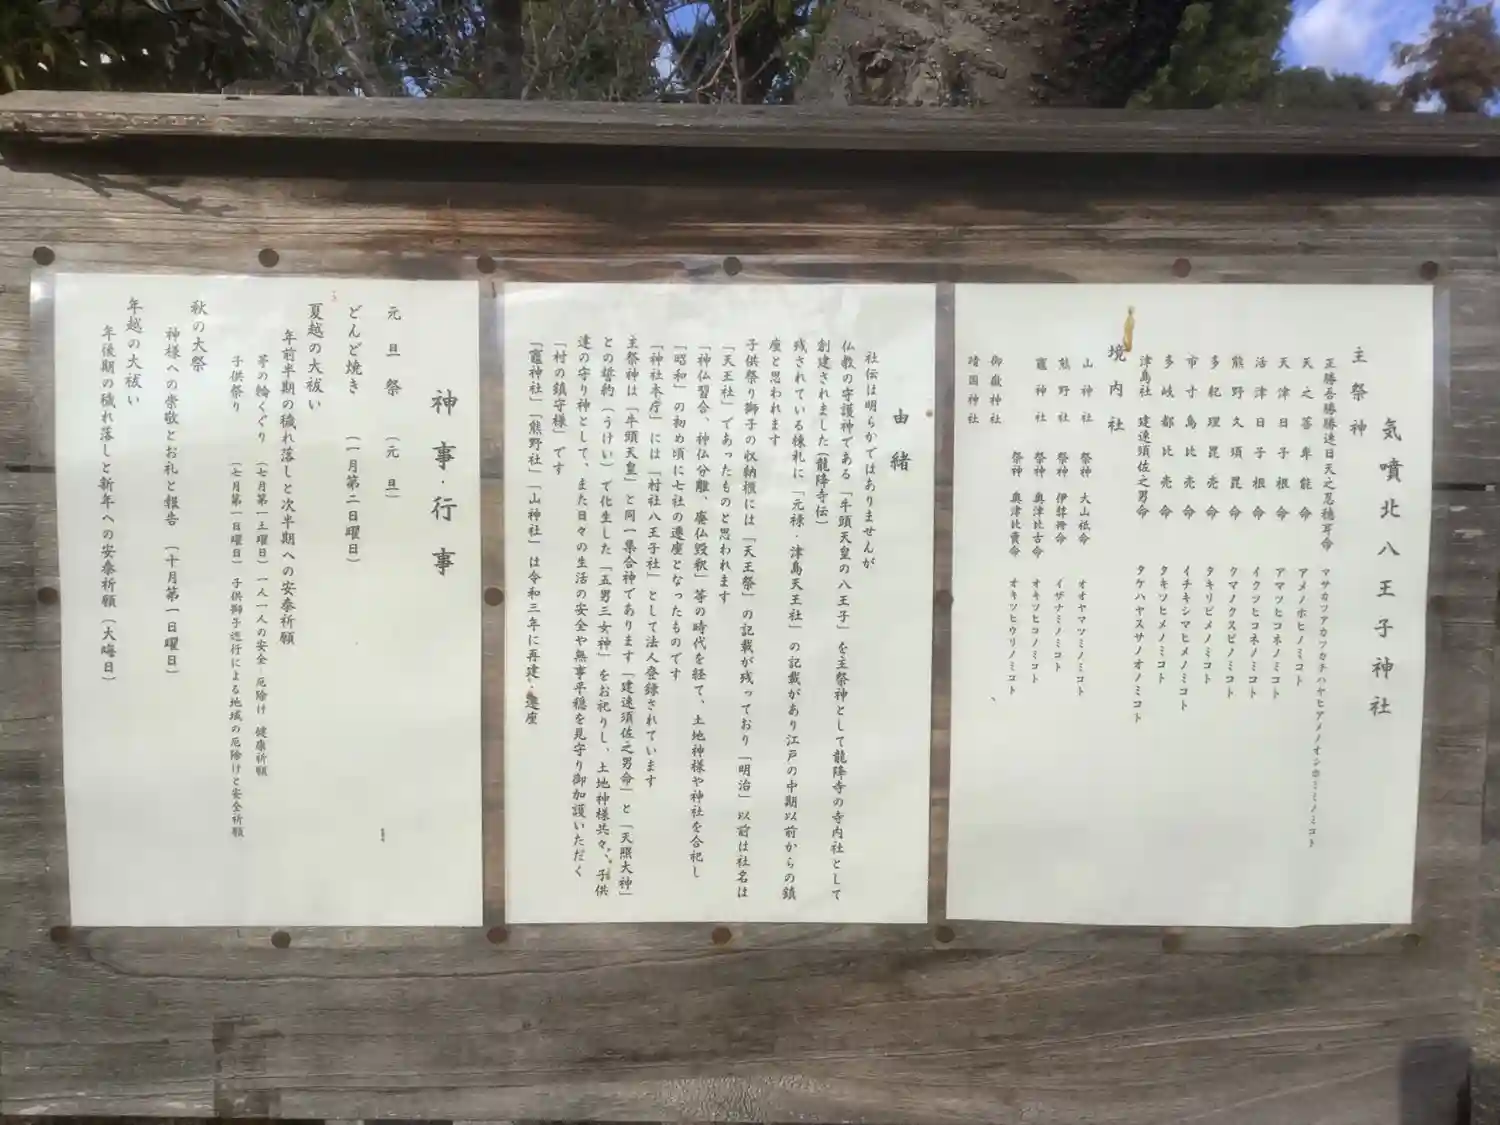 気噴北八王子神社
主祭神
正勝吾勝勝速日天之忍穂耳命 マサカツアカツカチハヤヒアメノオシホミミノミコト
天之菩卑能命 アメノホヒノミコト
天津日子根命 アマツヒコネノミコト
活津日子根命 イクツヒコネノミコト
熊野久須毘命 クマノクスビノミコト
多紀理毘売命 タキリビメノミコト
市寸島比売命 イチキシマヒメノミコト
多岐都比売命 タキツヒメノミコト
津島社 建速須佐之男命 タケハヤスサノオノミコト
境内社
山神社 祭神 大山祇命 オオヤマツミノミコト
熊野社 祭神 伊弉冊命 イザナミノミコト
竈神社 祭神 奥津比古命 オキツヒコノミコト
祭神 奥津比賣命 オキツヒウリノミコト
御嶽神社
靖国神社
由緒
社伝は明らかではありませんが
仏教の守護神である「牛頭天皇の八王子」を主祭神として龍降寺の寺内社として
創建されました(龍降寺伝)
残されている棟札に「元禄・津島天王社」の記載があり江戸の中期以前からの鎮
座と思われます
子供祭り獅子の収納櫃には「天王祭」の記載が残っており「明治」以前は社名は
「天王社」であったものと思われます
「神仏習合、神仏分離、廃仏毀釈」等の時代を経て、土地神様や神社を合祀し
「昭和」の初め頃に七社の遷座となったものです
「神社本庁」には「村社八王子社」として法人登録されています
主祭神は「牛頭天皇」と同一集合神であります「建速須佐之男命」と「天照大神」
との誓約(うけい)で化生した「五男三女神」をお祀りし、土地神様共々、子供
達の守り神として、また日々の生活の安全や無事平穏を見守り御加護いただく
「村の鎮守様」です
「竈神社」「熊野社」「山神社」は令和三年に再建・遷座
神事・行事
元旦祭 (元旦)
どんど焼き (一月第二日曜日)
夏越の大祓い
年前半期の穢れ落しと次半期への安泰祈願
茅の輪くぐり (七月第一土曜日) 一人一人の安全 厄除け 健康祈願
子供祭り (七月第一日曜日) 子供獅子巡行による地域の厄除けと安全祈願
秋の大祭
神様への崇敬とお礼と報告 (十月第一日曜日)
年越の大祓い
年後期の穢れ落しと新年への安泰祈願(大晦日)